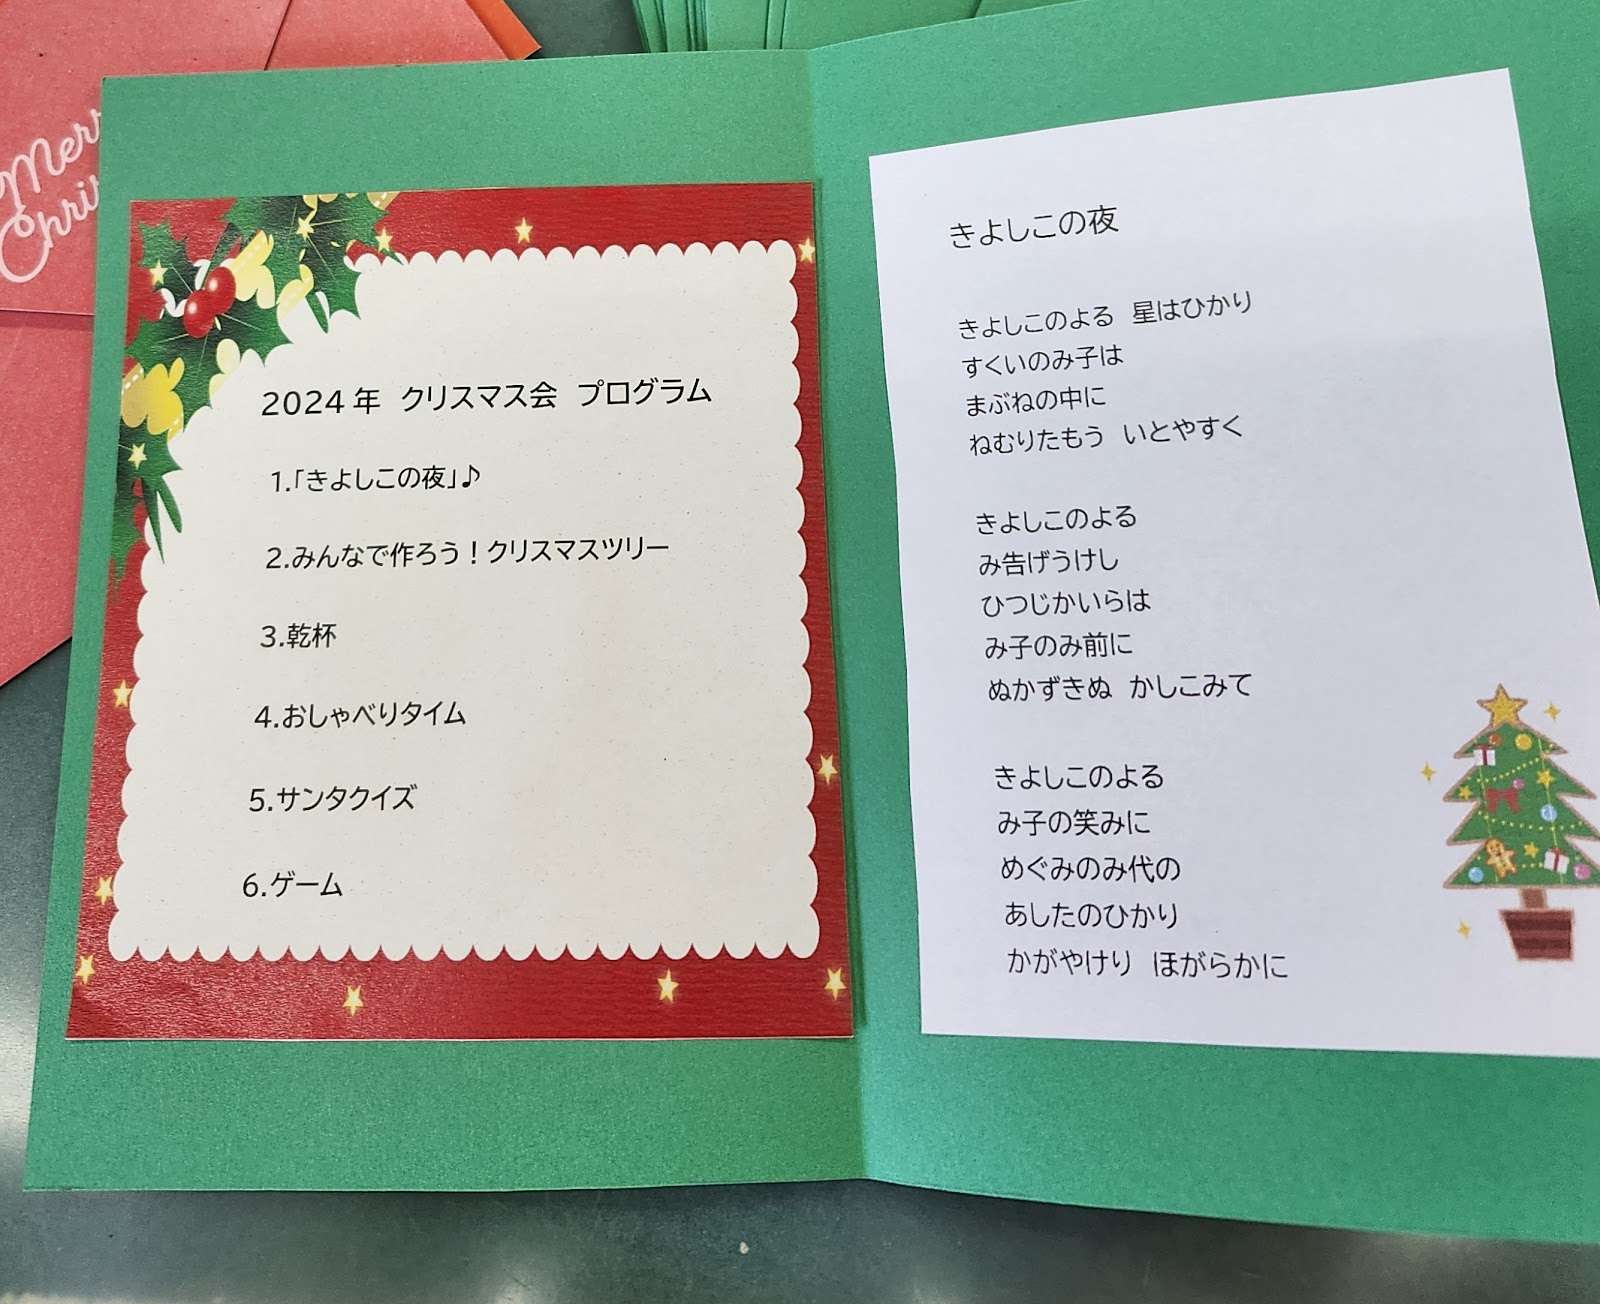 Merr
Chri
2024年 クリスマス会 プログラム
1.「きよしこの夜」♪
2.みんなで作ろう！クリスマスツリー
3.乾杯
4.おしゃべりタイム
5.サンタクイズ
6.ゲーム
きよしこの夜
きよしこのよる 星はひかり
すくいのみ子は
まぶねの中に
ねむりたもう いとやすく
きよしこのよる
み告げうけし
ひつじかいらは
み子のみ前に
ぬかずきぬ かしこみて
きよしこのよる
み子の笑みに
めぐみのみ代の
あしたのひかり
かがやけり ほがらかに